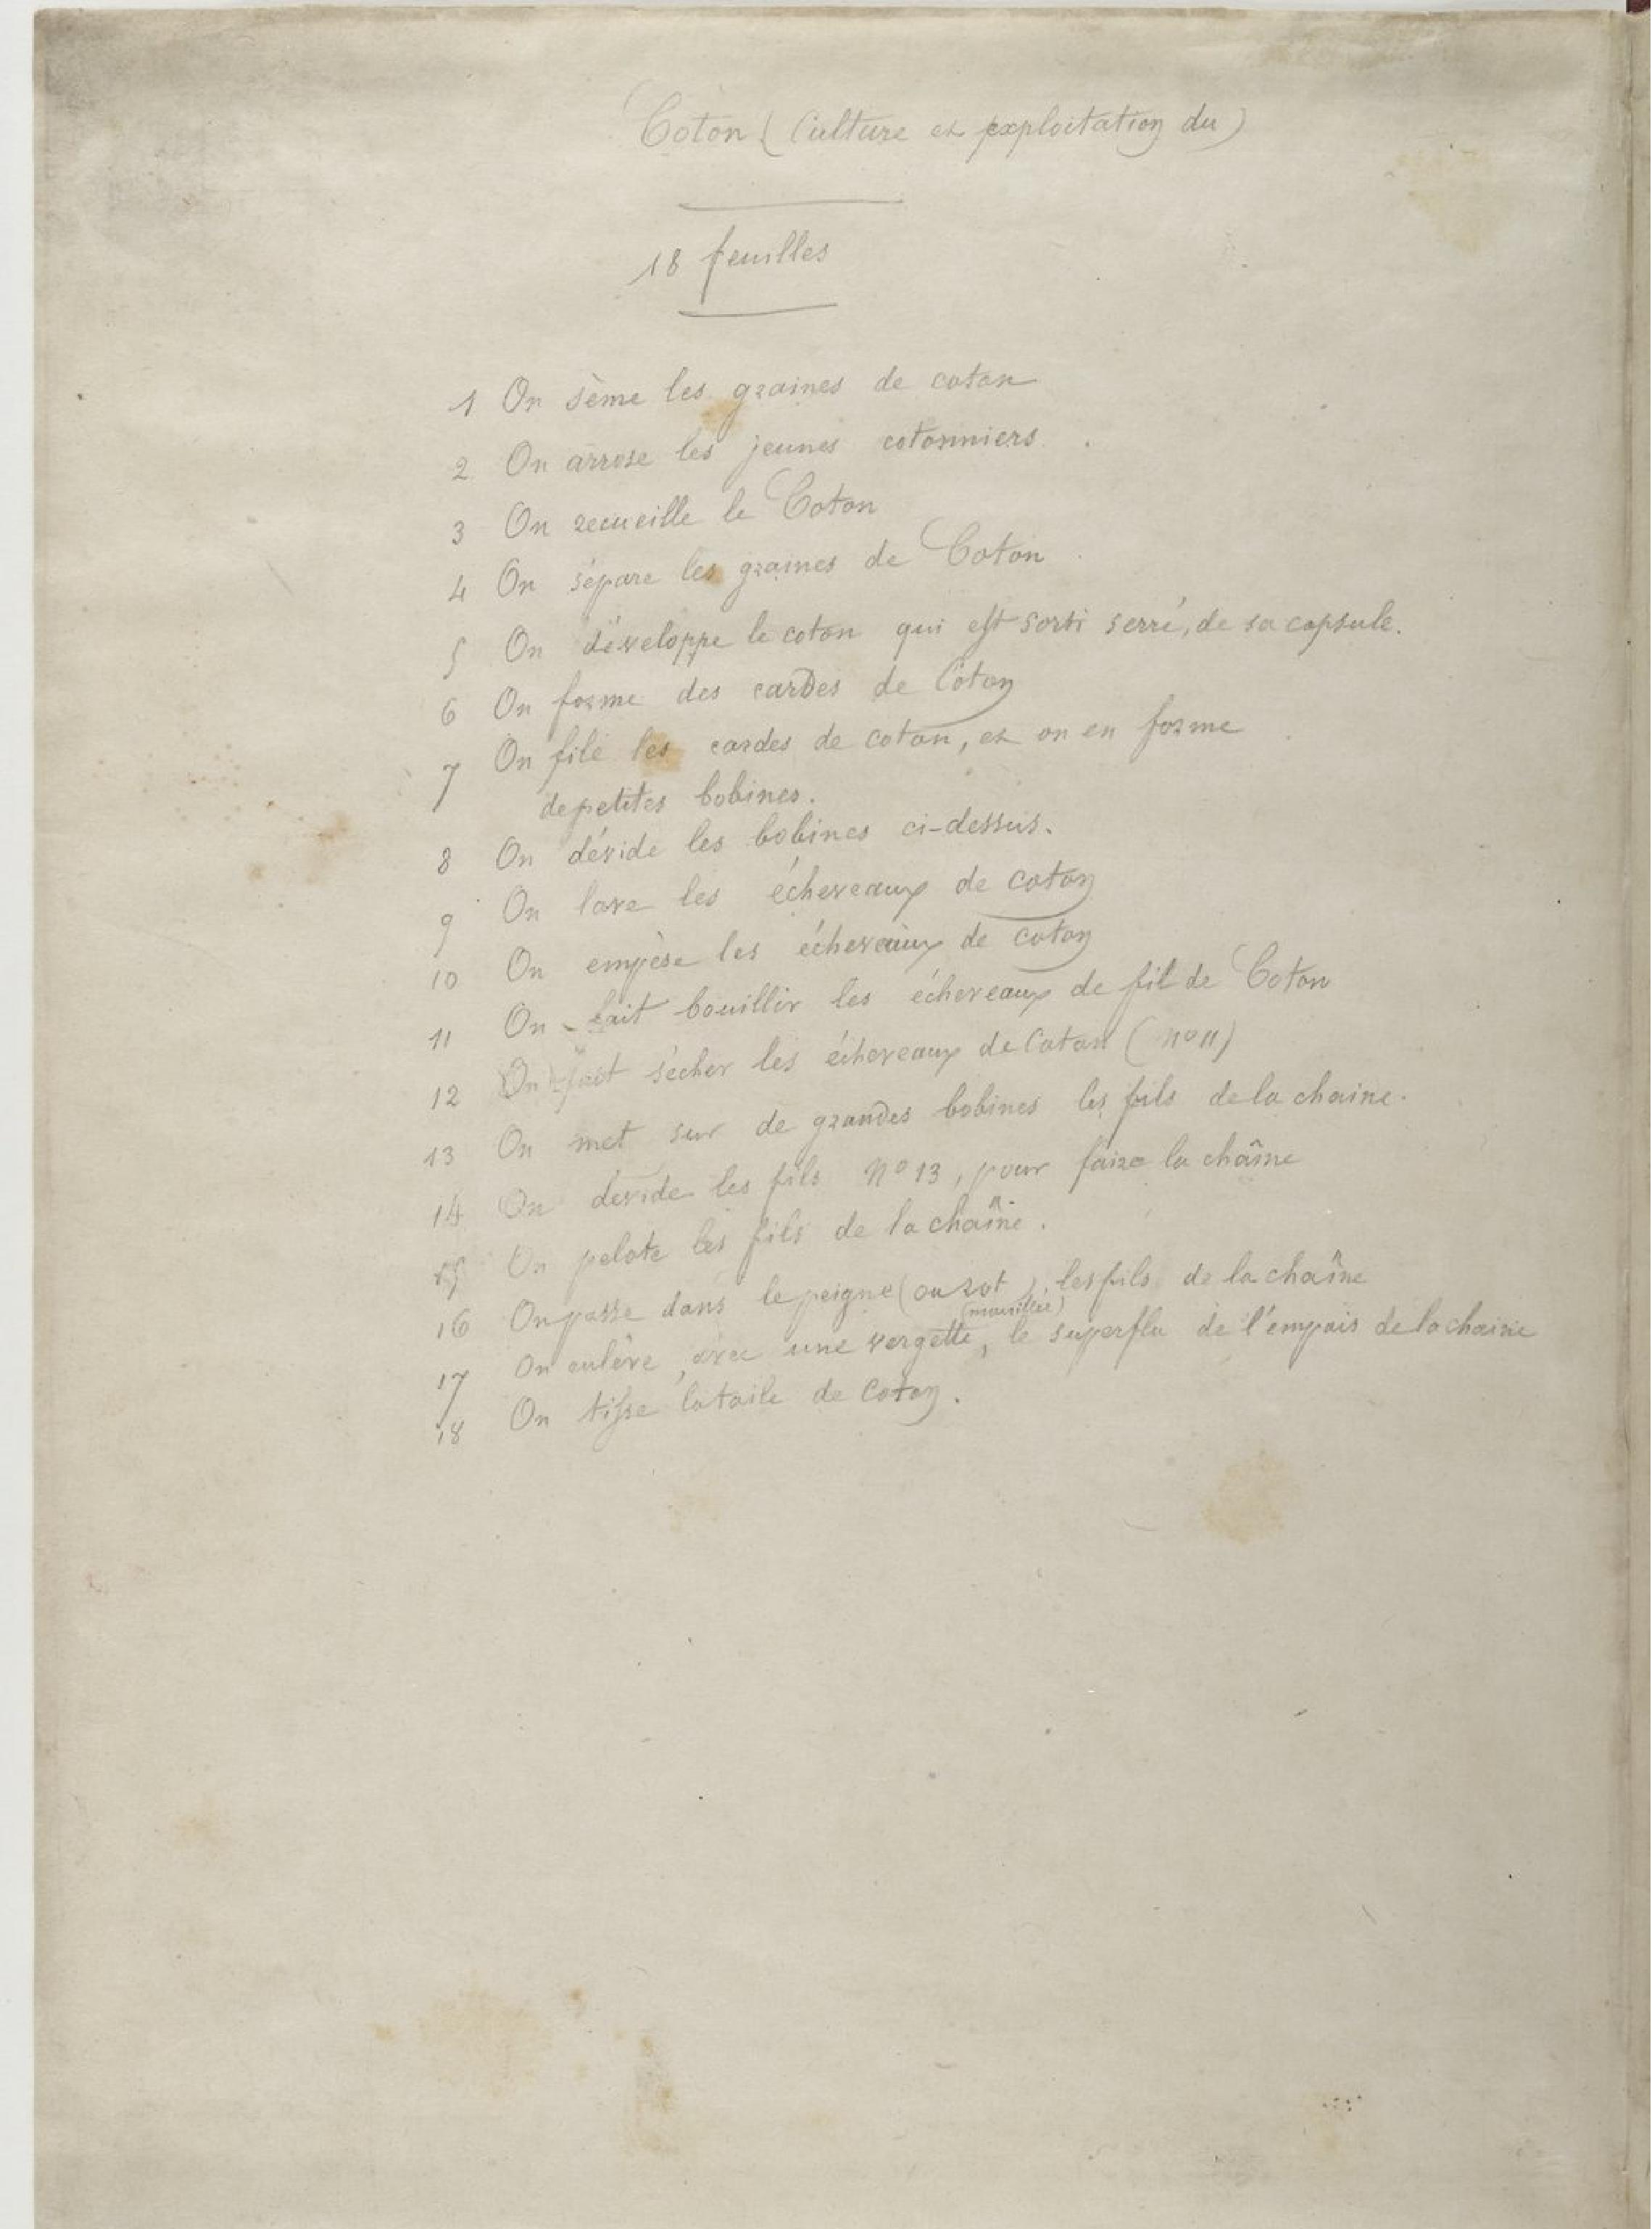 Coton (Culture et exploitation du)
18 feuilles
1 On sème les graines de coton
2 On arrose les jeunes cotonniers.
3 On recueille le Coton
4 On sépare les graines de Coton
5 On développe le coton qui est sorti serré, de sa capsule.
6 On forme des cardes de Coton
7 On file les cardes de coton, et on en forme
de petites bobines.
8 On dévide les bobines ci-dessus.
9 On lave les écheveaux de coton
10 On empèse les écheveaux de coton
11 On fait bouillir les écheveaux de fil de Coton
12 On fait sécher les écheveaux de Coton (no 11)
13 On met sur de grandes bobines les fils de la chaine.
14 On dévide les fils No 13, pour faire la chaîne
15 On pelote les fils de la chaîne.
16 On passe dans le peigne (ou rot), les fils de la chaîne
(mouillée)
17 On enlève, avec une vergette, le superflu de l'empois de la chaine
18 On tisse la toile de Coton.